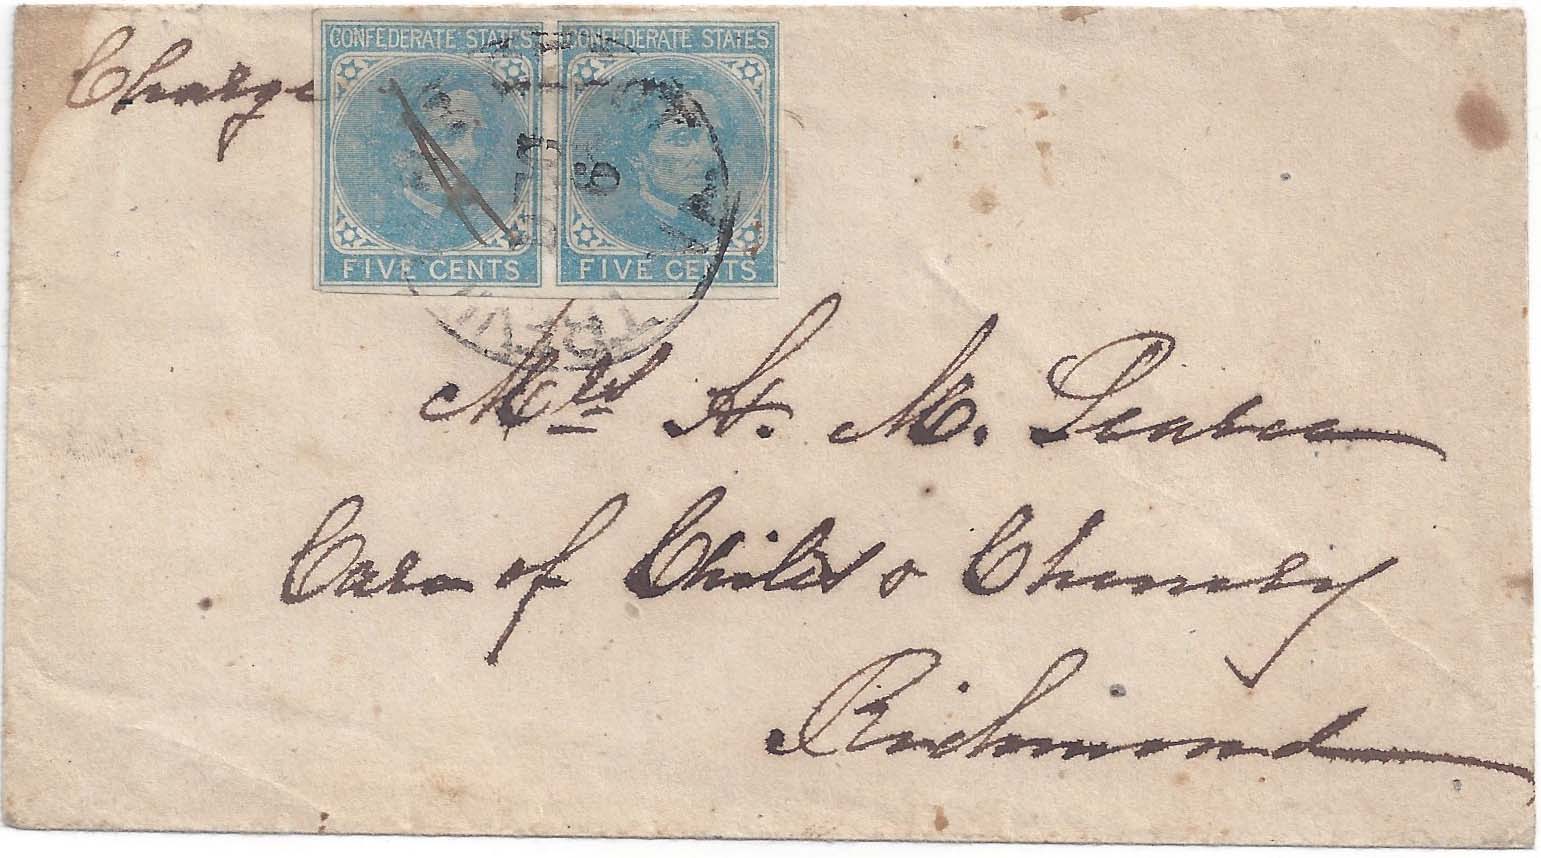 Charge
CONFEDERATE STATES CONFEDERATE STATES
FIVE CENTS FIVE CENTS
VA
Mrs H. M. Pearce
Care of Childs & Chenery
Richmond